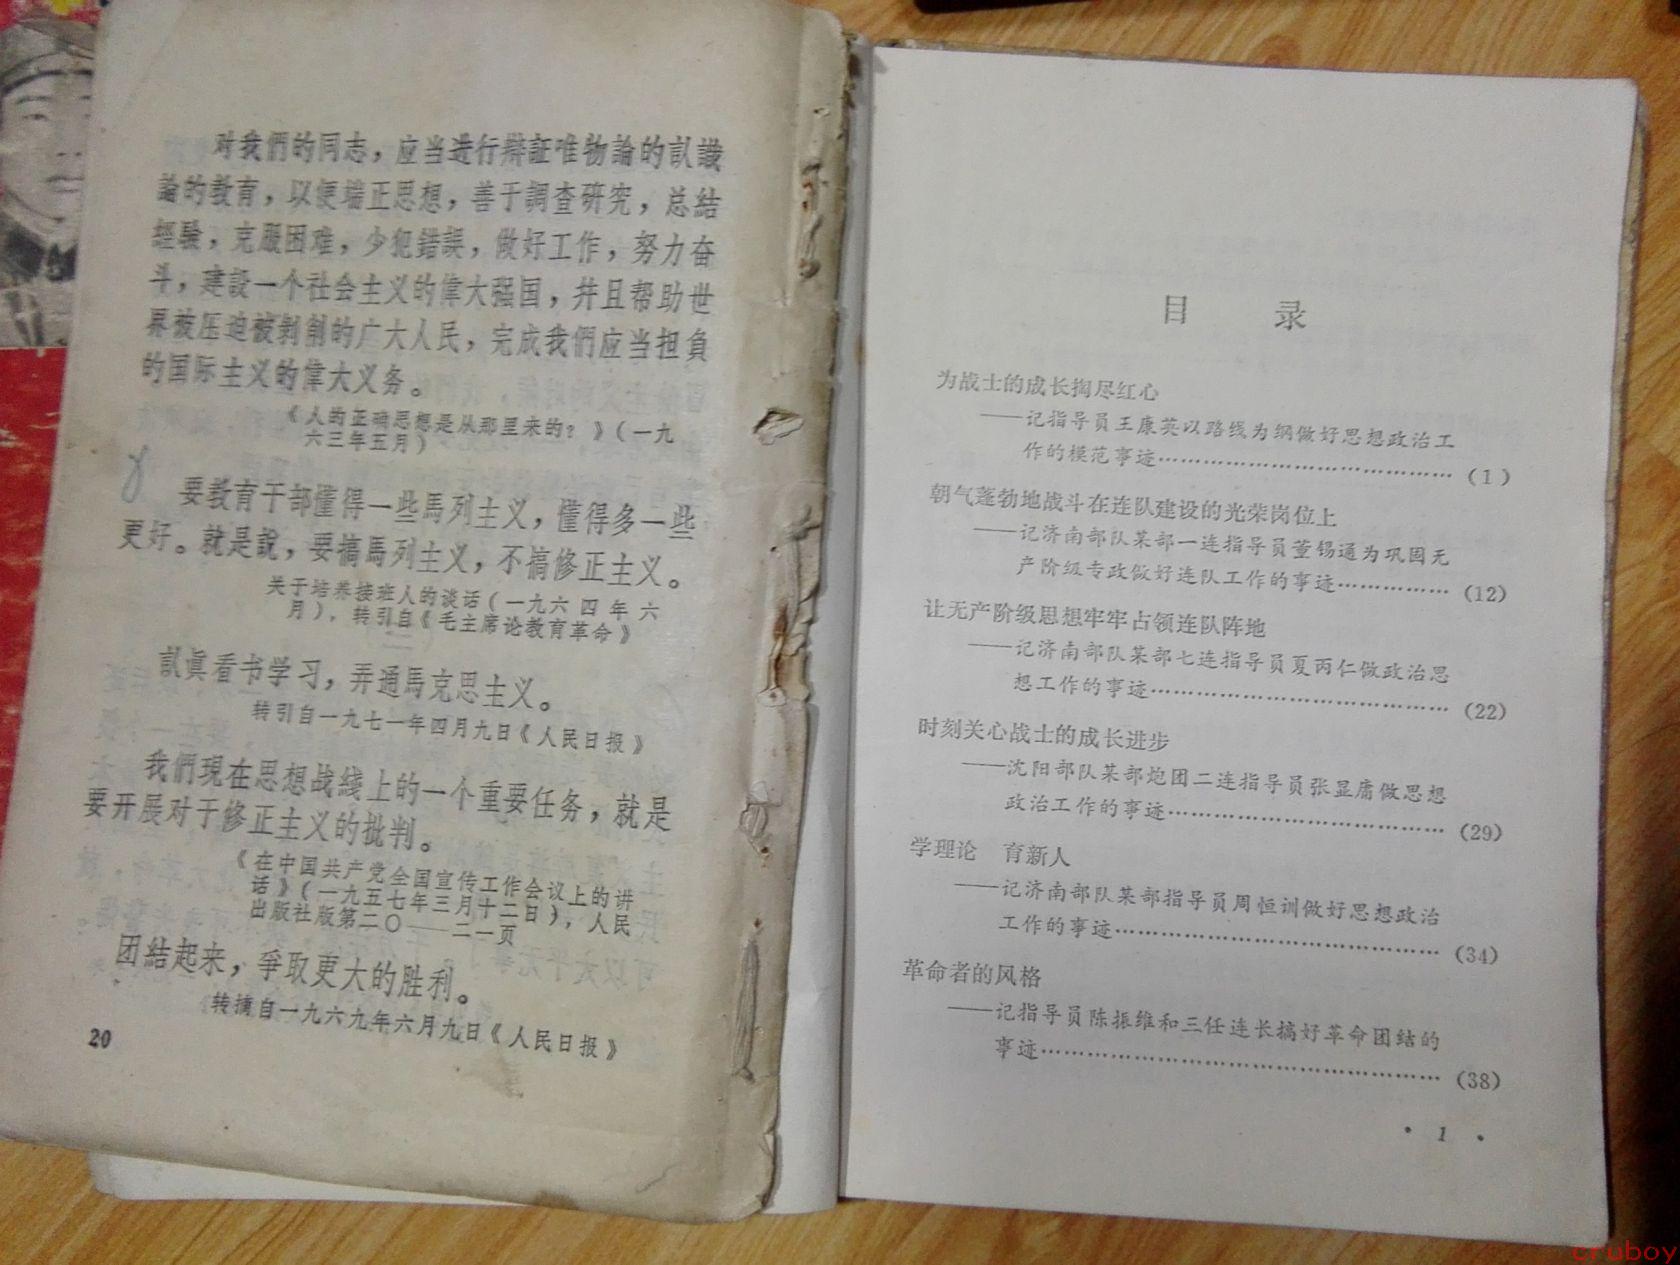 对我們的同志，应当进行辩証唯物論的認識
論的教育，以便端正思想，善于調查研究，总結
經驗，克服困难，少犯錯誤，做好工作，努力奋
斗，建設一个社会主义的偉大强国，并且帮助世
界被压迫被剝削的广大人民，完成我們应当担負
的国际主义的偉大义务。
《人的正确思想是从那里来的？》（一九
六三年五月）
要教育干部懂得一些馬列主义，懂得多一些
更好。就是說，要搞馬列主义，不搞修正主义。
关于培养接班人的谈话（一九六四年六
月），转引自《毛主席论教育革命》
認眞看书学习，弄通馬克思主义。
转引自一九七一年四月九日《人民日报》
我們現在思想战綫上的一个重要任务，就是
要开展对于修正主义的批判。
《在中国共产党全国宣传工作会议上的讲
话》（一九五七年三月十二日），人民
出版社版第二〇——二一页
团結起来，爭取更大的胜利。
转摘自一九六九年六月九日《人民日报》
20
目　录
为战士的成长掏尽红心
——记指导员王康英以路线为纲做好思想政治工
作的模范事迹…………………………………（1）
朝气蓬勃地战斗在连队建设的光荣岗位上
——记济南部队某部一连指导员董锡通为巩固无
产阶级专政做好连队工作的事迹…………（12）
让无产阶级思想牢牢占领连队阵地
——记济南部队某部七连指导员夏丙仁做政治思
想工作的事迹…………………………………（22）
时刻关心战士的成长进步
——沈阳部队某部炮团二连指导员张显庸做思想
政治工作的事迹………………………………（29）
学理论　育新人
——记济南部队某部指导员周恒训做好思想政治
工作的事迹……………………………………（34）
革命者的风格
——记指导员陈振维和三任连长搞好革命团结的
事迹……………………………………………（38）
· 1 ·
cruboy